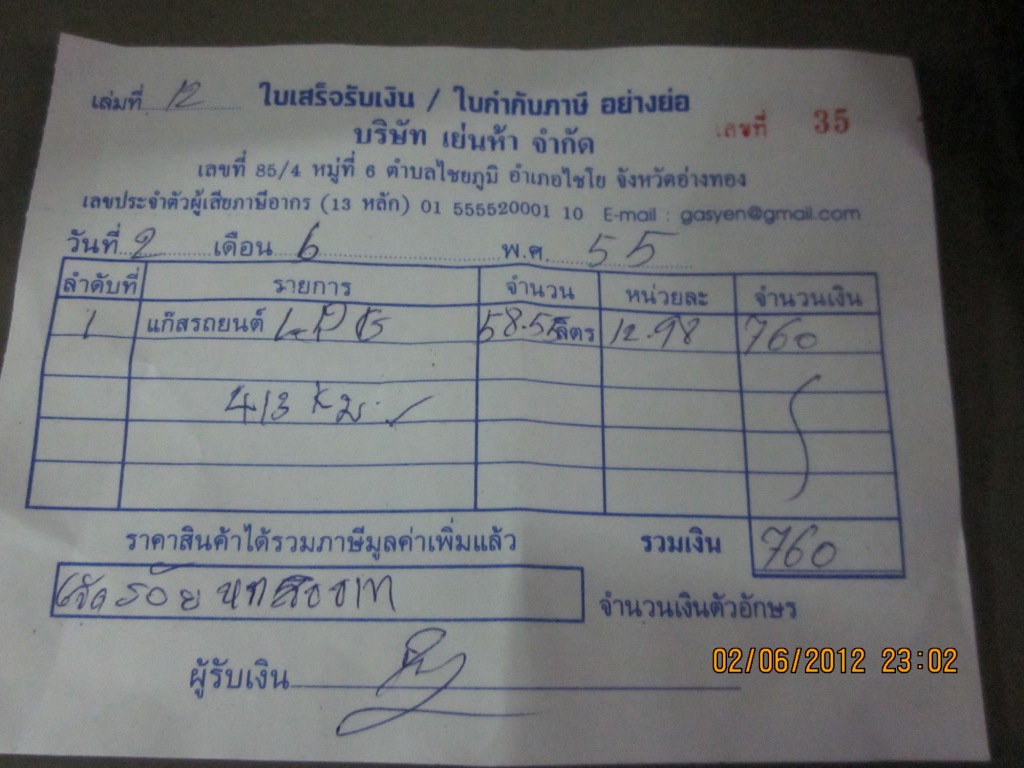 เล่มที่ 12 ใบเสร็จรับเงิน / ใบกำกับภาษี อย่างย่อ
เลขที่ 35
บริษัท เย่นห้า จำกัด
เลขที่ 85/4 หมู่ที่ 6 ตำบลไชยภูมิ อำเภอไชโย จังหวัดอ่างทอง
เลขประจำตัวผู้เสียภาษีอากร (13 หลัก) 01 555520001 10 E-mail : gasyen@gmail.com
วันที่ 2 เดือน 6 พ.ศ. 55
ลำดับที่ รายการ จำนวน หน่วยละ จำนวนเงิน
1 แก๊สรถยนต์ LPG 58.55 ลิตร 12.98 760
413 กม.
ราคาสินค้าได้รวมภาษีมูลค่าเพิ่มแล้ว รวมเงิน 760
เจ็ดร้อยหกสิบบาท จำนวนเงินตัวอักษร
ผู้รับเงิน
02/06/2012 23:02